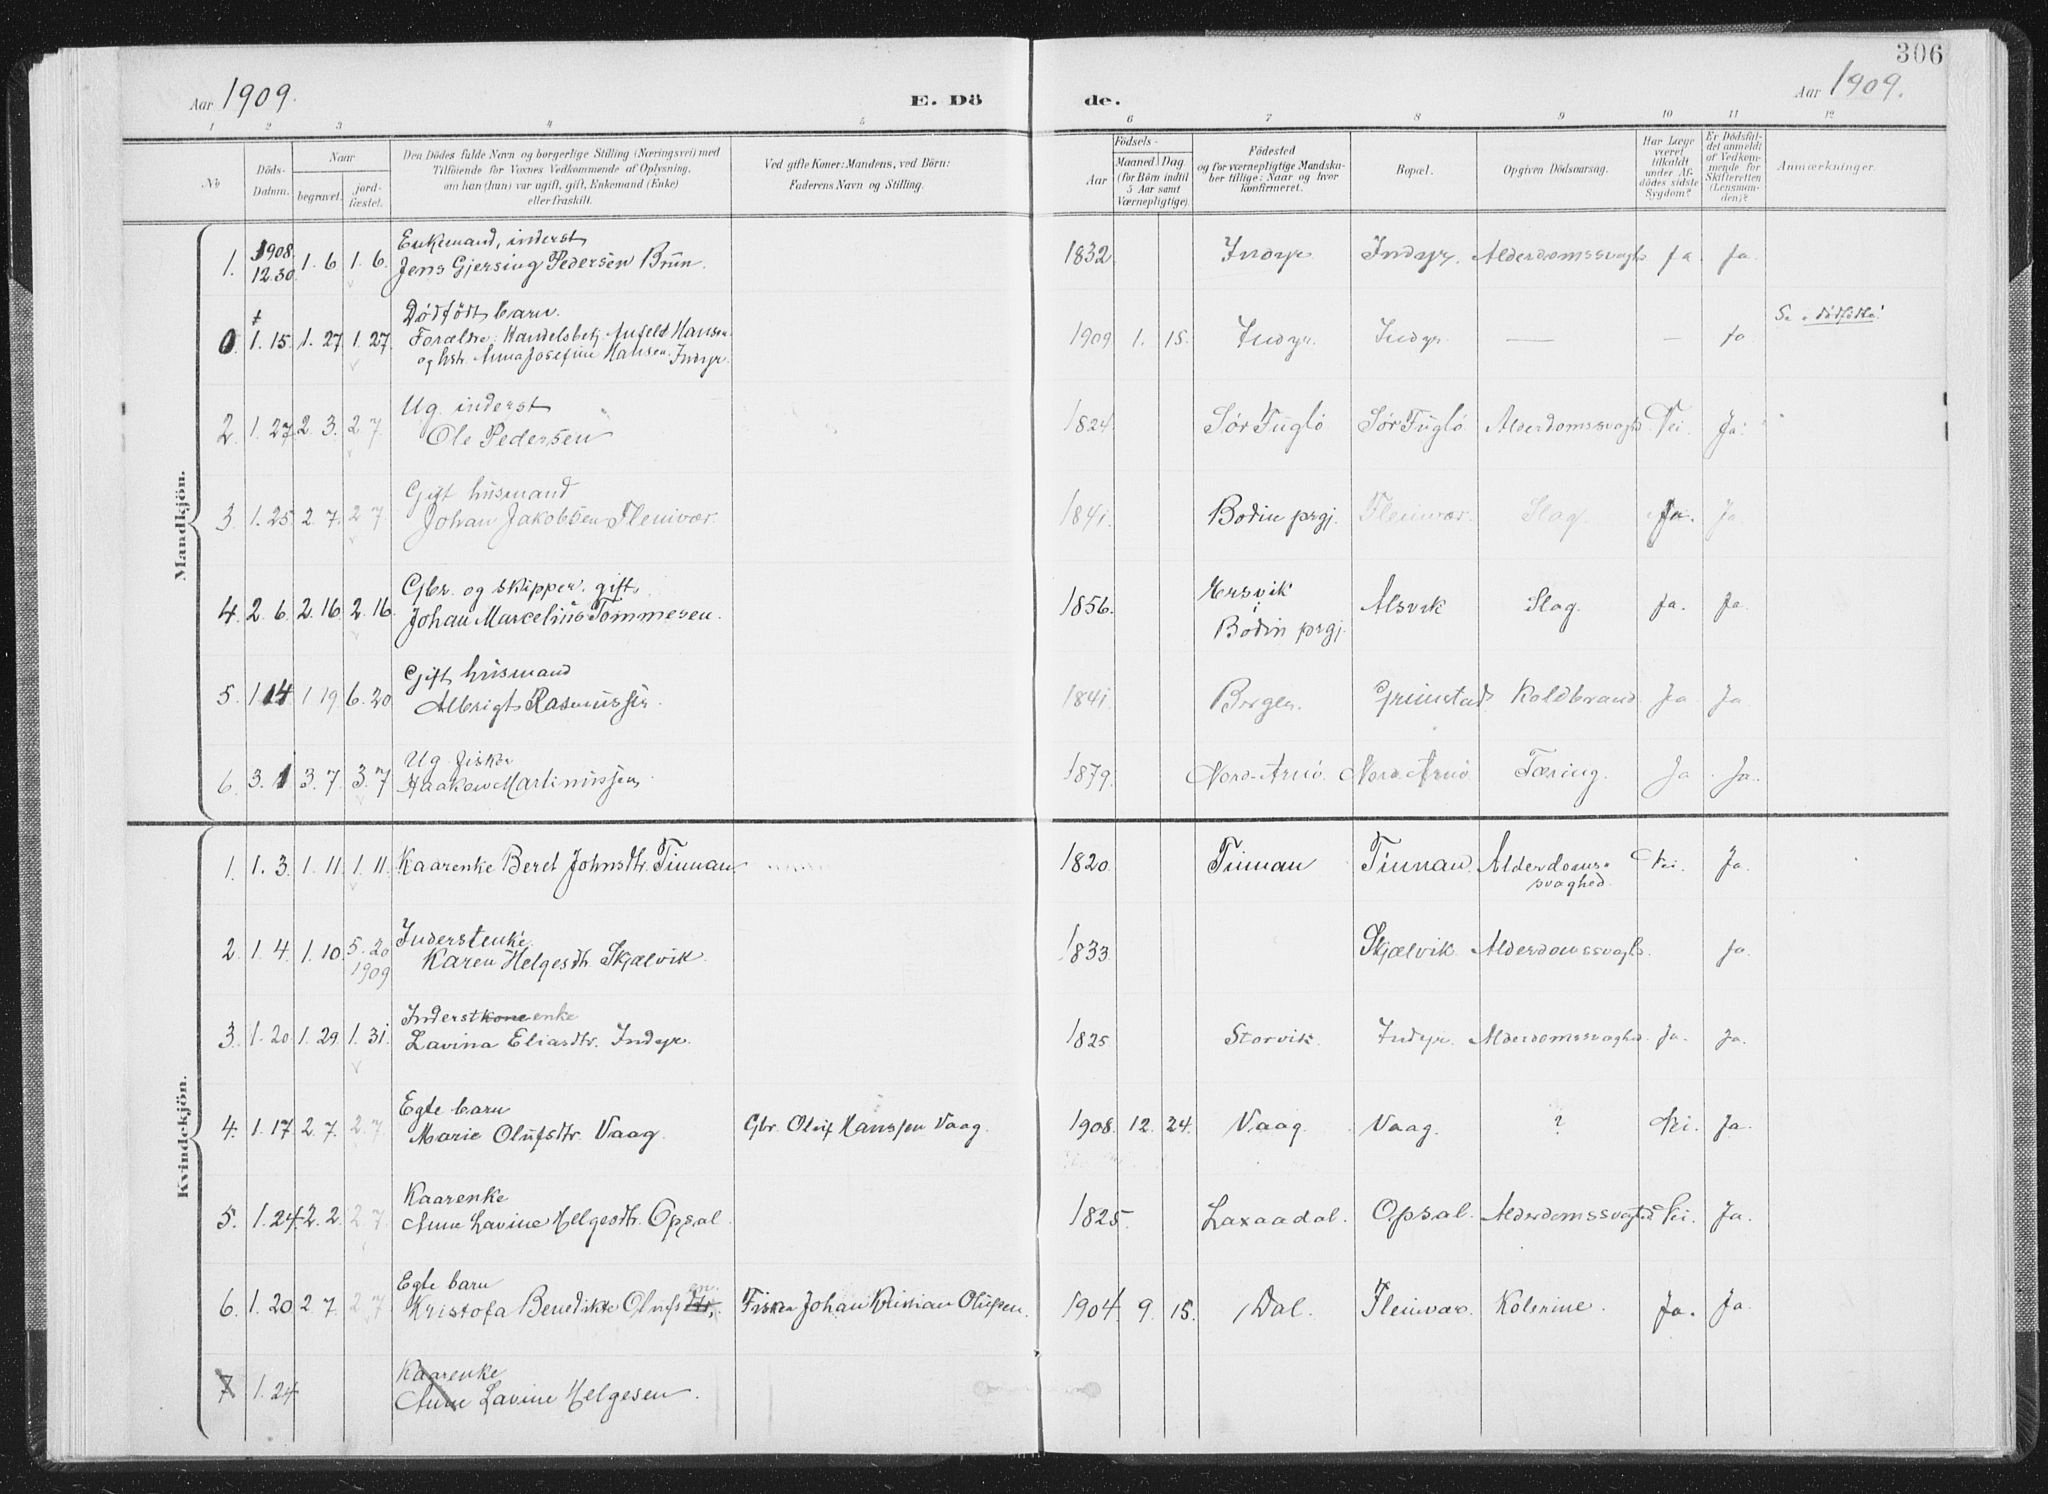 306
Aar 1909.
E. Dö
de.
Aar 1909.
1 2 3 4 5 6 7 8 9 10 11 12
No
Döds-Datum.
Naar
begravet.
jord-fæstet.
Den Dödes fulde Navn og borgerlige Stilling (Næringsvei) med
Tilföiende for Voxnes Vedkommende af Oplysning,
om han (hun) var ugift, gift, Enkemand (Enke)
eller fraskilt.
Ved gifte Koner: Mandens, ved Börn:
Faderens Navn og Stilling.
Födsels-
Aar
Maaned
Dag.
(for Börn indtil
5 Aar samt
Værnepligtige).
Födested
og for værnepligtige Mandska-
ber tillige: Naar og hvor
konfirmeret.
Bopæl.
Opgiven Dödsaarsag.
Har Læge
været
tilkaldt
under Af-
dödes sidste
Sygdom?
Er Dödsfal-
det anmeldt
af Vedkom-
mende for
Skifteretten
(Lensman-
den)?
Anmærkninger.
Mandkjön.
1. 1908 12.30. 1. 6 1. 6. Enkemand, inderst
Jens Gjersing Pedersen Brun. 1832 Indyr Indyr. Alderdomssvagh. Ja Ja.
0. 1. 15. 1. 27 1. 27 Dødfödt barn.
Forældre: Handelsbetj. Anfeld Hansen
og hstr. Anna Josefine Hansen. Indyr. 1909 1. 15. Indyr. Indyr. — — Ja Se "dödfödte"
2. 1. 27 2 3. 2 7. Ug. inderst
Ole Pedersen 1824. Sör Fuglö Sör Fuglö. Alderdomssvagh. Nei. Ja.
3. 1. 25. 2. 7. 2 7 Gift husmand
Johan Jakobsen Fleinvær. 1841. Bodin prgj. Fleinvær. Slag. Ja. Ja
4. 2. 6. 2. 16 2. 16. Gbr. og skipper. gift.
Johan Marcelius Tommesen. 1856. Ersvik
i
Bodin prgj. Alsvik Slag. Ja. Ja.
5. 1 14 1 19 6. 20 Gift husmand
Albrigt Rasmussen. 1841. Bergen. Grimstad Koldbrand. Ja Ja.
6. 3. 1 3. 7 3. 7 Ug. fisker
Haakon Martinussen. 1879. Nord-Arnö. Nord-Arnö Tæring. Ja. Ja.
Kvindekjön.
1. 1. 3. 1. 11. 1. 11. Kaarenke Beret Johnsdtr. Finnan 1820. Finnan Finnan. Alderdoms-
svaghed. Nei. Ja.
2. 1. 4. 1. 10. 5. 20
1909 Inderstenke.
Karen Helgesdtr. Skjælvik. 1833. Skjælvik Alderdomssvagh. Ja
3. 1. 20. 1. 29. 1. 31. Inderstkone enke
Lavina Eliasdtr. Indyr. 1825. Storvik. Indyr. Alderdomssvaghed Ja. Ja.
4. 1. 17 2. 7. 2. 7. Egte barn
Marie Olufsdtr. Vaag. Gbr. Oluf Hanssen Vaag. 1908. 12. 24. Vaag. Vaag. ? Nei. Ja.
5. 1. 24. 2. 2. 2 7. Kaarenke
Anne Lavine Helgesdtr. Opsal. 1825. Laxaadal. Opsal. Alderdomssvaghed Nei. Ja.
6. 1. 20 2 7. 2 7. Egte barn
Kristofa Benedikte Olufsdtr. en. Fisker Johan Kristian Olufsen. 1904 9. 15. Dal. Fleinvær. Kolerine. Ja. Ja.
7 1. 24 Kaarenke
Anne Lavine Helgesen.